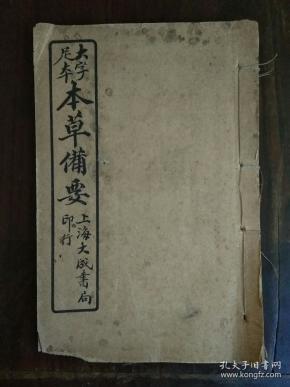 大字
足本
本草備要
上海大成書局
印行
孔夫子旧书网
kongfz.com